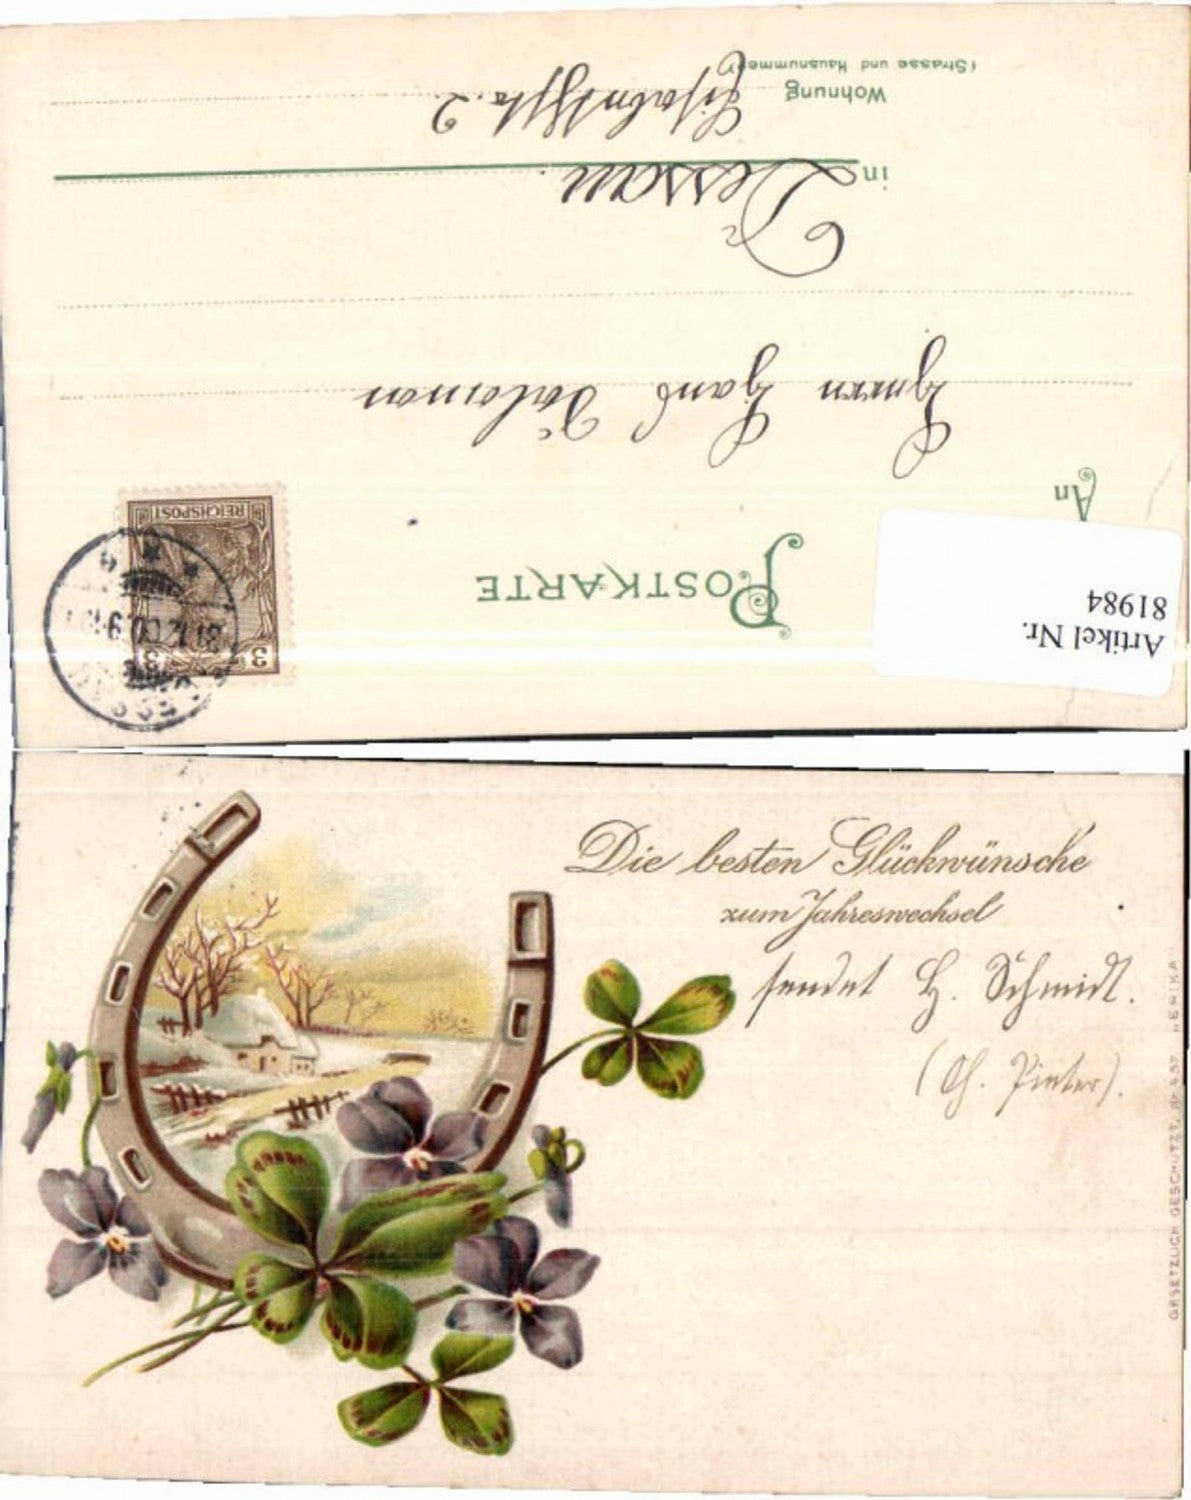 Artikel Nr.
81984
POSTKARTE
REICHSPOST
3 3
31.12.00.9
An
Herrn Hans
in Dessau.
Wohnung
(Strasse und Hausnummer)
2.
Die besten Glückwünsche
zum Jahreswechsel
sendet H. Schmidt.
GESETZLICH GESCHÜTZT,